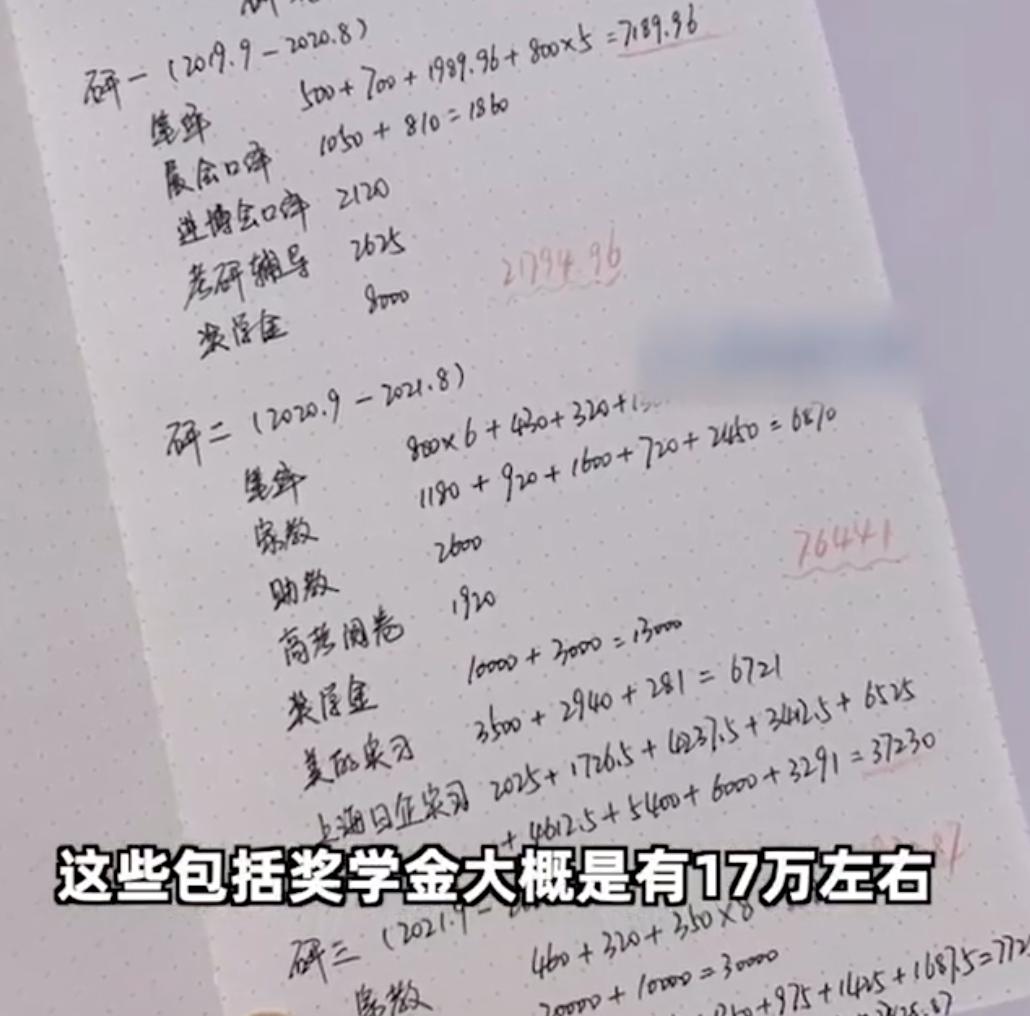 研一 (2019.9 - 2020.8)
笔译 500 + 700 + 1989.96 + 800×5 = 7189.96
展会口译 1050 + 810 = 1860
进博会口译 2120
考研辅导 2625
奖学金 8000
21794.96
研二 (2020.9 - 2021.8)
笔译 800×6 + 430 + 320 +
家教 1180 + 920 + 1600 + 720 + 2450 = 6870
助教 2600
高考阅卷 1920
76441
奖学金 10000 + 3000 = 13000
美的实习 3500 + 2940 + 281 = 6721
上海日企实习 2025 + 1726.5 + 4237.5 + 3412.5 + 6525
+ 4612.5 + 5400 + 6000 + 3291 = 37230
这些包括奖学金大概是有17万左右
研三 (2021.9 -
家教 460 + 320 + 350×8
20000 + 10000 = 30000
+ 975 + 1425 + 1687.5 =